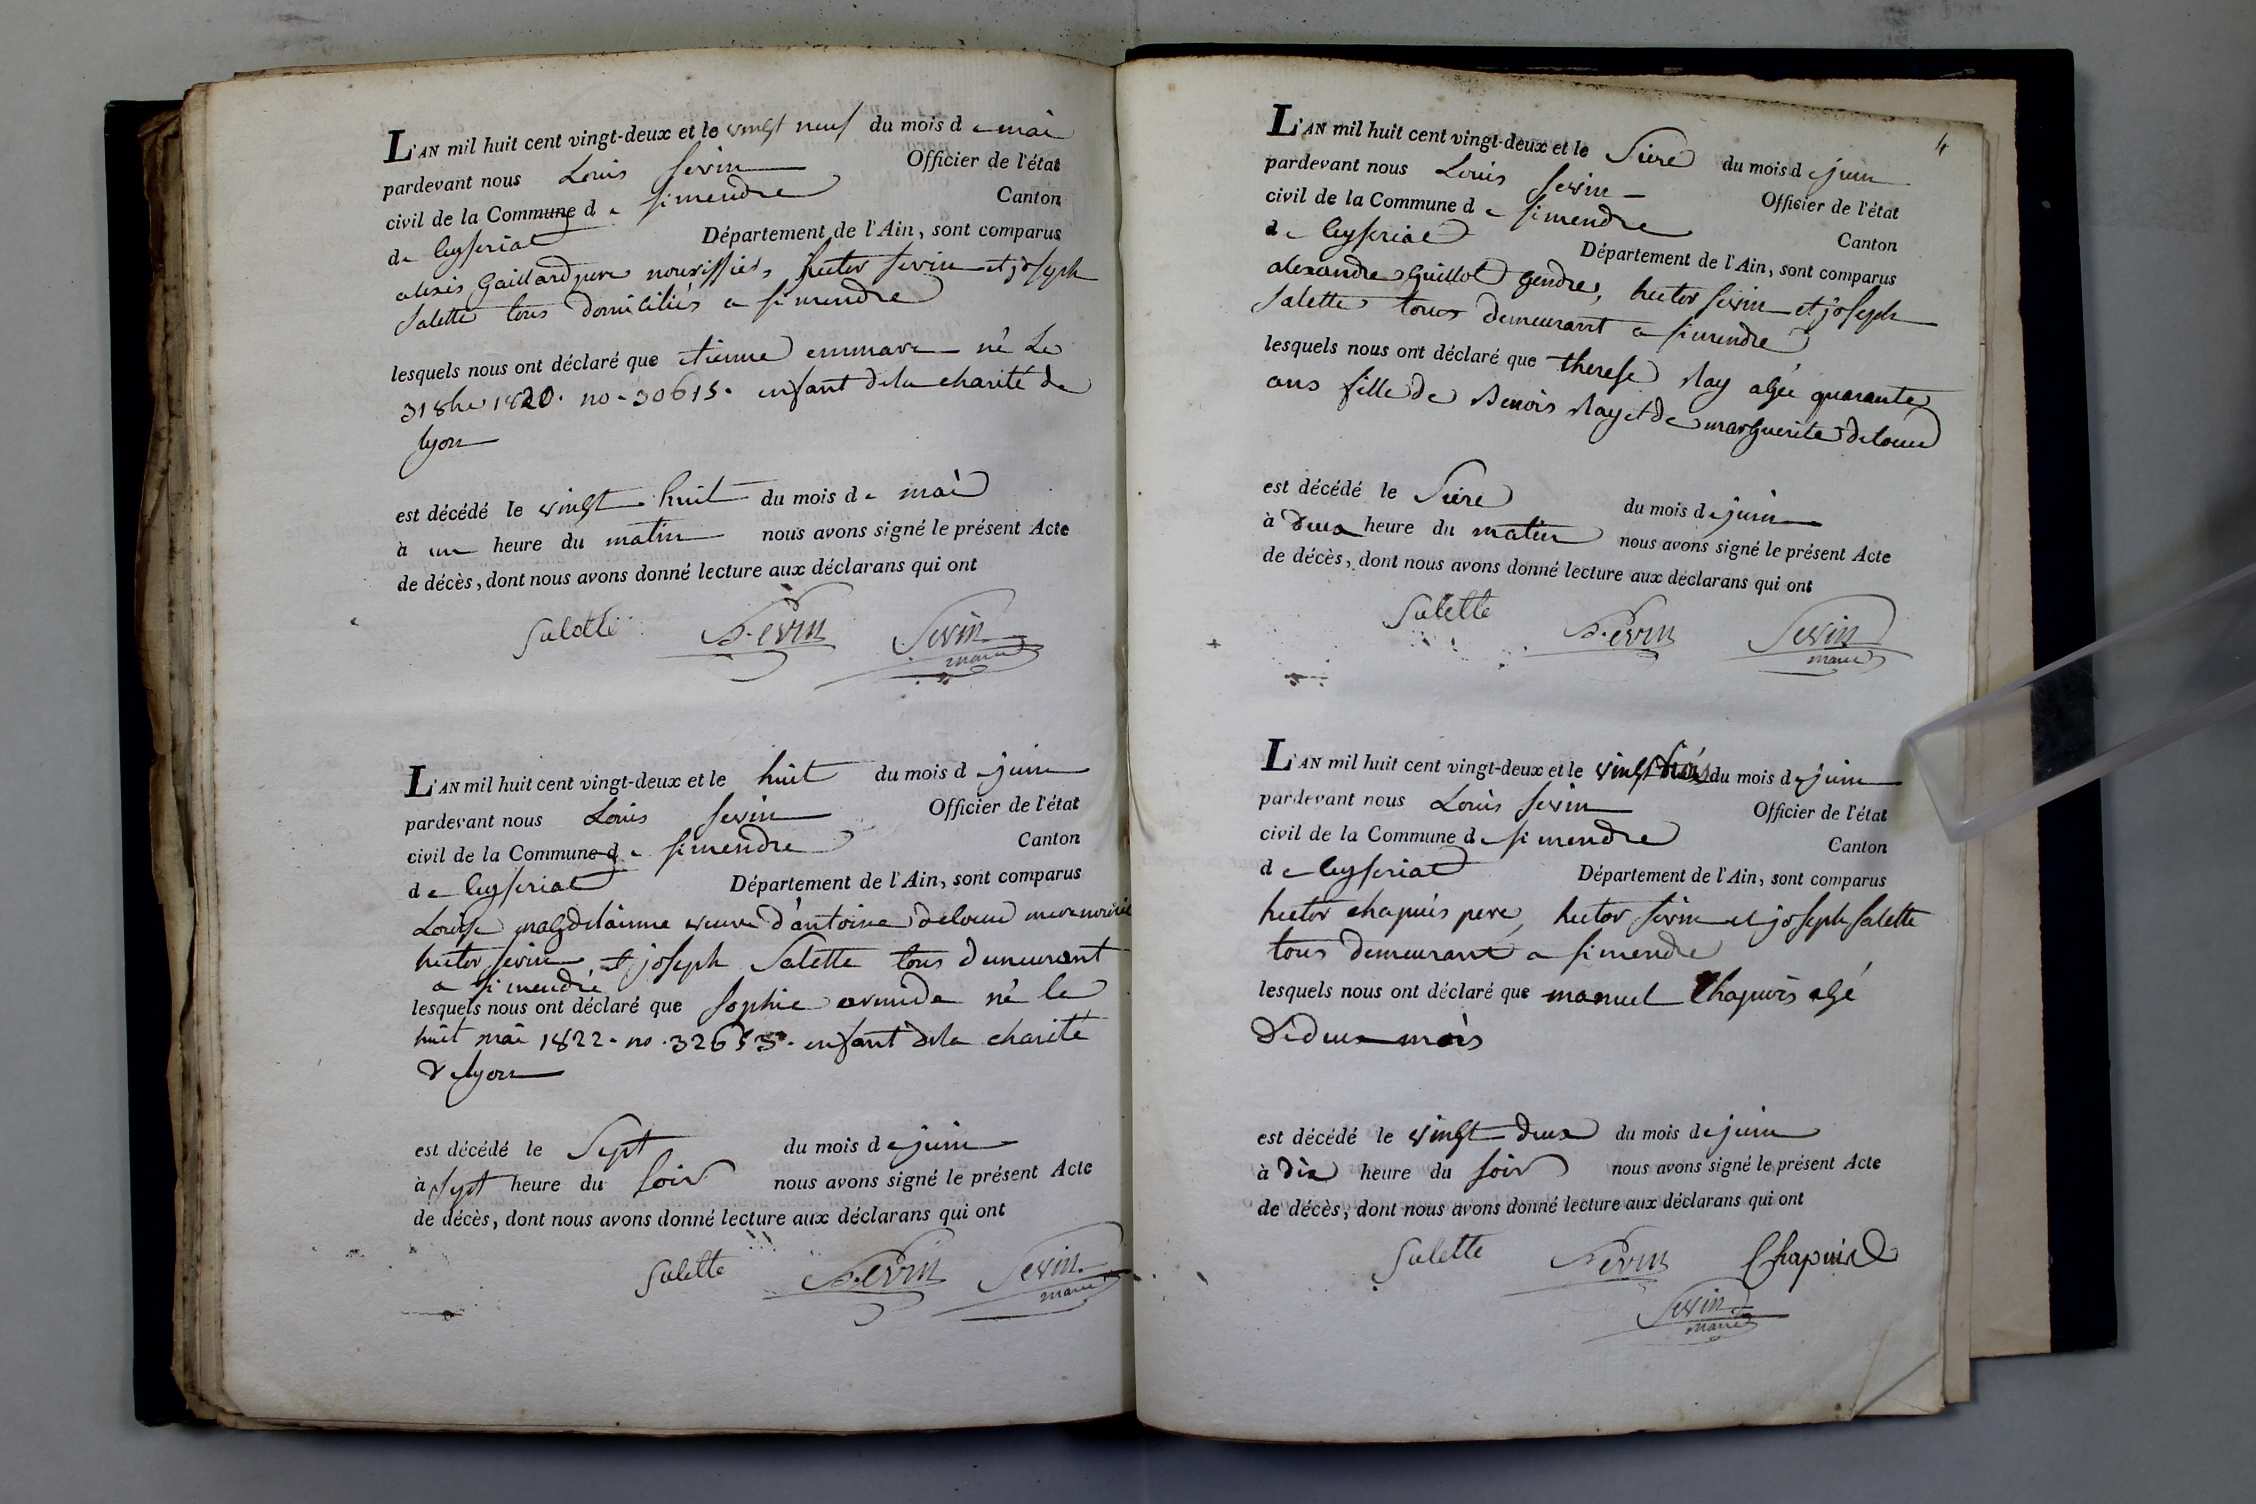 L'AN mil huit cent vingt-deux et le vingt neuf du mois de mai
pardevant nous Louis Sevin Officier de l'état
civil de la Commune de Simendre Canton
de Ceyseriat Département de l'Ain, sont comparus
alexis Gaillard pere nourissier, hector Sevin et joseph
Salette tous domiciliés a Simendre
lesquels nous ont déclaré que etienne né Le
31 8bre 1820. no. 30615. enfant dela charité de
lyon
est décédé le vingt huit du mois de mai
à un heure du matin nous avons signé le présent Acte
de décès, dont nous avons donné lecture aux déclarans qui ont
Salette Sevin Sevin
maire
L'AN mil huit cent vingt-deux et le huit du mois de juin
pardevant nous Louis Sevin Officier de l'état
civil de la Commune de Simendre Canton
de Ceyseriat Département de l'Ain, sont comparus
Louise magdelainne veuve d'antoine deloeur mere
hector Sevin et joseph Salette tous demeurant
a Simendre
lesquels nous ont déclaré que Sophie né le
huit mai 1822. no. 32653. enfant dela charité
de lyon
est décédé le Sept du mois de juin
à Sept heure du Soir nous avons signé le présent Acte
de décès, dont nous avons donné lecture aux déclarans qui ont
Salette Sevin Sevin
maire
4
L'AN mil huit cent vingt-deux et le du mois de juin
pardevant nous Louis Sevin Officier de l'état
civil de la Commune de Simendre Canton
de Ceyseriat Département de l'Ain, sont comparus
alexandre Guillot gendre, hector Sevin et joseph
Salette tous demeurant a Simendre
lesquels nous ont déclaré que therese Ray agée quarante
ans fille de Benois Ray et de marguerite deloeur
est décédé le du mois de juin
à deux heure du matin nous avons signé le présent Acte
de décès, dont nous avons donné lecture aux déclarans qui ont
Salette Sevin Sevin
maire
L'AN mil huit cent vingt-deux et le vingt trois du mois de juin
pardevant nous Louis Sevin Officier de l'état
civil de la Commune de Simendre Canton
de Ceyseriat Département de l'Ain, sont comparus
hector chapuis pere, hector Sevin et joseph Salette
tous demeurant a Simendre
lesquels nous ont déclaré que manuel Chapuis agé
de deux mois
est décédé le vingt deux du mois de juin
à dix heure du soir nous avons signé le présent Acte
de décès, dont nous avons donné lecture aux déclarans qui ont
Salette Sevin Chapuis
Sevin
maire